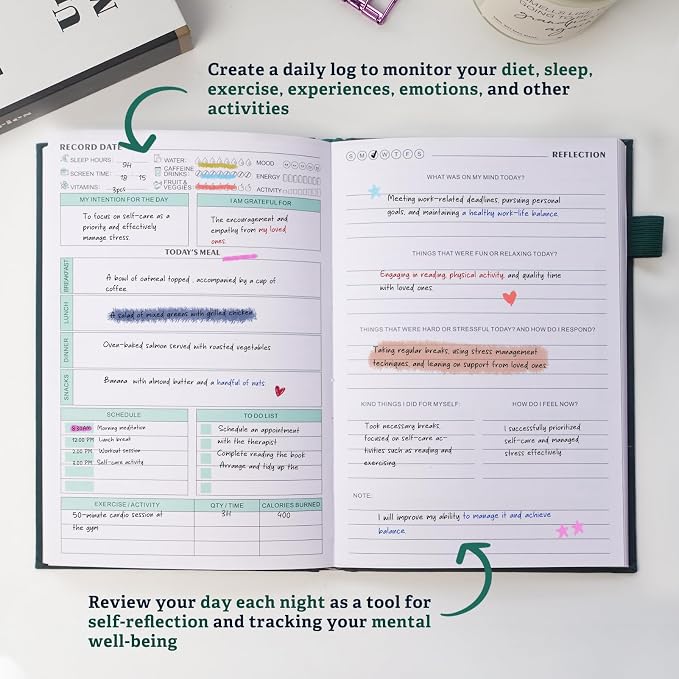 SMELLS LIKE
GOING TO BE
grandparents
again
Create a daily log to monitor your diet, sleep,
exercise, experiences, emotions, and other
activities
RECORD DAT
SLEEP HOURS: 9H
SCREEN TIME: 18 : 15
VITAMINS: 3pcs
WATER:
CAFFEINE
DRINKS:
FRUIT &
VEGGIES:
MOOD
ENERGY
ACTIVITY
MY INTENTION FOR THE DAY
To focus on self-care as a
priority and effectively
manage stress.
I AM GRATEFUL FOR
The encouragement and
empathy from my loved
ones.
TODAY'S MEAL
BREAKFAST
A bowl of oatmeal topped , accompanied by a cup of
coffee
LUNCH
A salad of mixed greens with grilled chicken
DINNER
Oven-baked salmon served with roasted vegetables
SNACKS
Banana with almond butter and a handful of nuts.
SCHEDULE
8:30AM Morning meditation
12:00 PM Lunch break
2:00 PM Workout session
3:00 PM Self-care activity
TO DO LIST
Schedule an appointment
with the therapist
Complete reading the book
Arrange and tidy up the
EXERCISE / ACTIVITY QTY / TIME CALORIES BURNED
50-minute cardio session at 3H 400
the gym
S M W T F S REFLECTION
WHAT WAS ON MY MIND TODAY?
Meeting work-related deadlines, pursuing personal
goals, and maintaining a healthy work-life balance.
THINGS THAT WERE FUN OR RELAXING TODAY?
Engaging in reading, physical activity, and quality time
with loved ones.
THINGS THAT WERE HARD OR STRESSFUL TODAY? AND HOW DO I RESPOND?
Taking regular breaks, using stress management
techniques, and leaning on support from loved ones
KIND THINGS I DID FOR MYSELF:
Took necessary breaks,
focused on self-care ac-
tivities such as reading and
exercising.
HOW DO I FEEL NOW?
I successfully prioritized
self-care and managed
stress effectively
NOTE:
I will improve my ability to manage it and achieve
balance.
Review your day each night as a tool for
self-reflection and tracking your mental
well-being